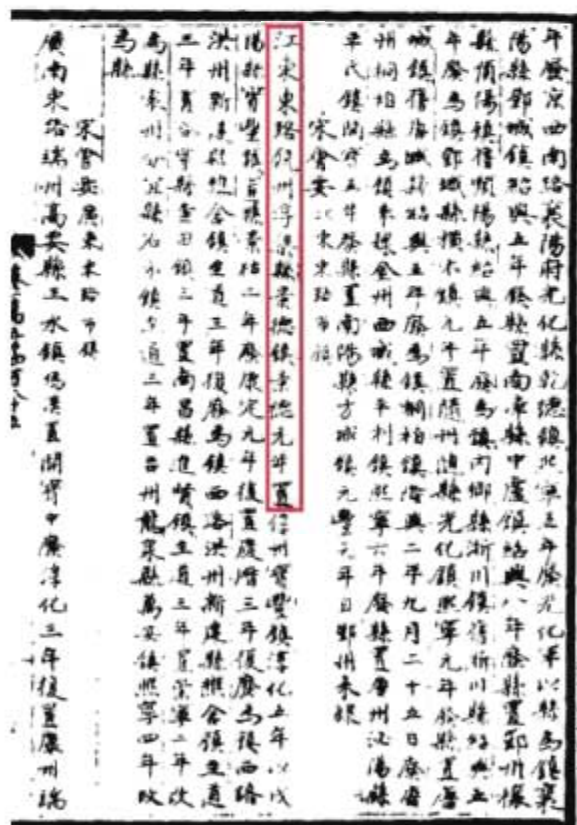 年廢京西南路襄陽府光化縣乾德鎮熙寧五年廢光化軍以縣為鎮襄
陽縣鄧城鎮紹興五年鎮縣置南漳縣中盧鎮紹興八年廢縣置鄧州穰
縣順陽鎮舊順陽縣紹興五年廢為鎮內鄉縣淅川鎮舊淅川縣紹興五
年廢為鎮鄧城縣橫木鎮元年置隨州隨縣光化鎮熙寧元年廢縣置唐
城鎮舊唐城縣紹興五年廢為鎮桐柏鎮紹興二年九月二十五日廢唐
州桐柏縣為鎮來隸金州西城縣平利鎮熙寧六年廢縣置唐州泌陽縣
平氏鎮開寶五年廢縣置南陽縣方城鎮元豐元年自鄧州來隸
宋會要江東東路市鎮
江東東路饒州浮梁縣景德鎮景德元年置信州寶豐鎮淳化五年以弋
陽縣寶豐鎮置縣景祐二年廢康定元年復置慶曆三年復廢為鎮西路
洪州新建縣樵舍鎮至道三年復廢為鎮西路洪州新建縣樵舍鎮至道
三年置分寧縣查田鎮三年置南昌縣進賢鎮至道三年置崇寧二年改
為縣袁州分宜縣石水鎮至道三年置吉州龍泉縣萬安鎮熙寧四年改
為縣
宋會要廣東東路市鎮
廣南東路端州高要縣三水鎮偽漢置開寶中廢淳化三年復置廣州端